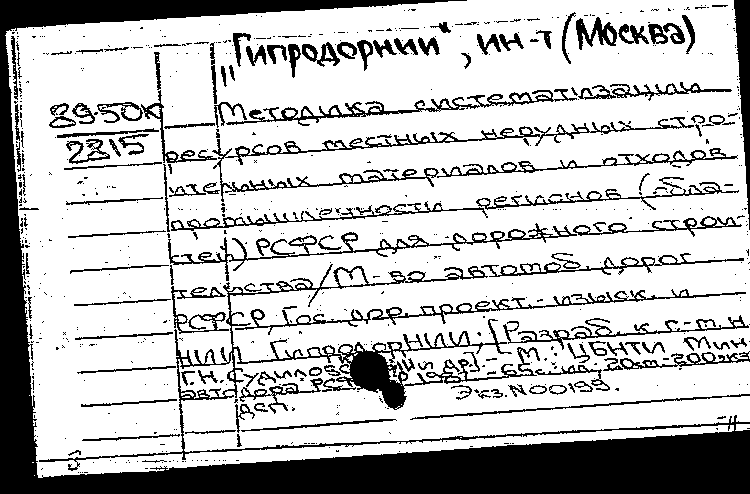 „Гипродорнии“, ин-т (Москва)
89-50к
2315
Методика систематизации
ресурсов местных нерудных строи-
ительных материалов и отходов
промышленности регионов (обла-
стей) РСФСР для дорожного строи-
тельства/М-во автомоб. дорог
РСФСР, Гос. дор. проект.-изыск. и
НИИ ГипродорНИИ; [Разраб. к.г.-м.н.
Г.Н. Судилов и др.] - М.: ЦБНТИ Мин-
автодора РСФСР 198 - 65с.: ил.; 20см-200экз
ДСП. Экз. N00199.